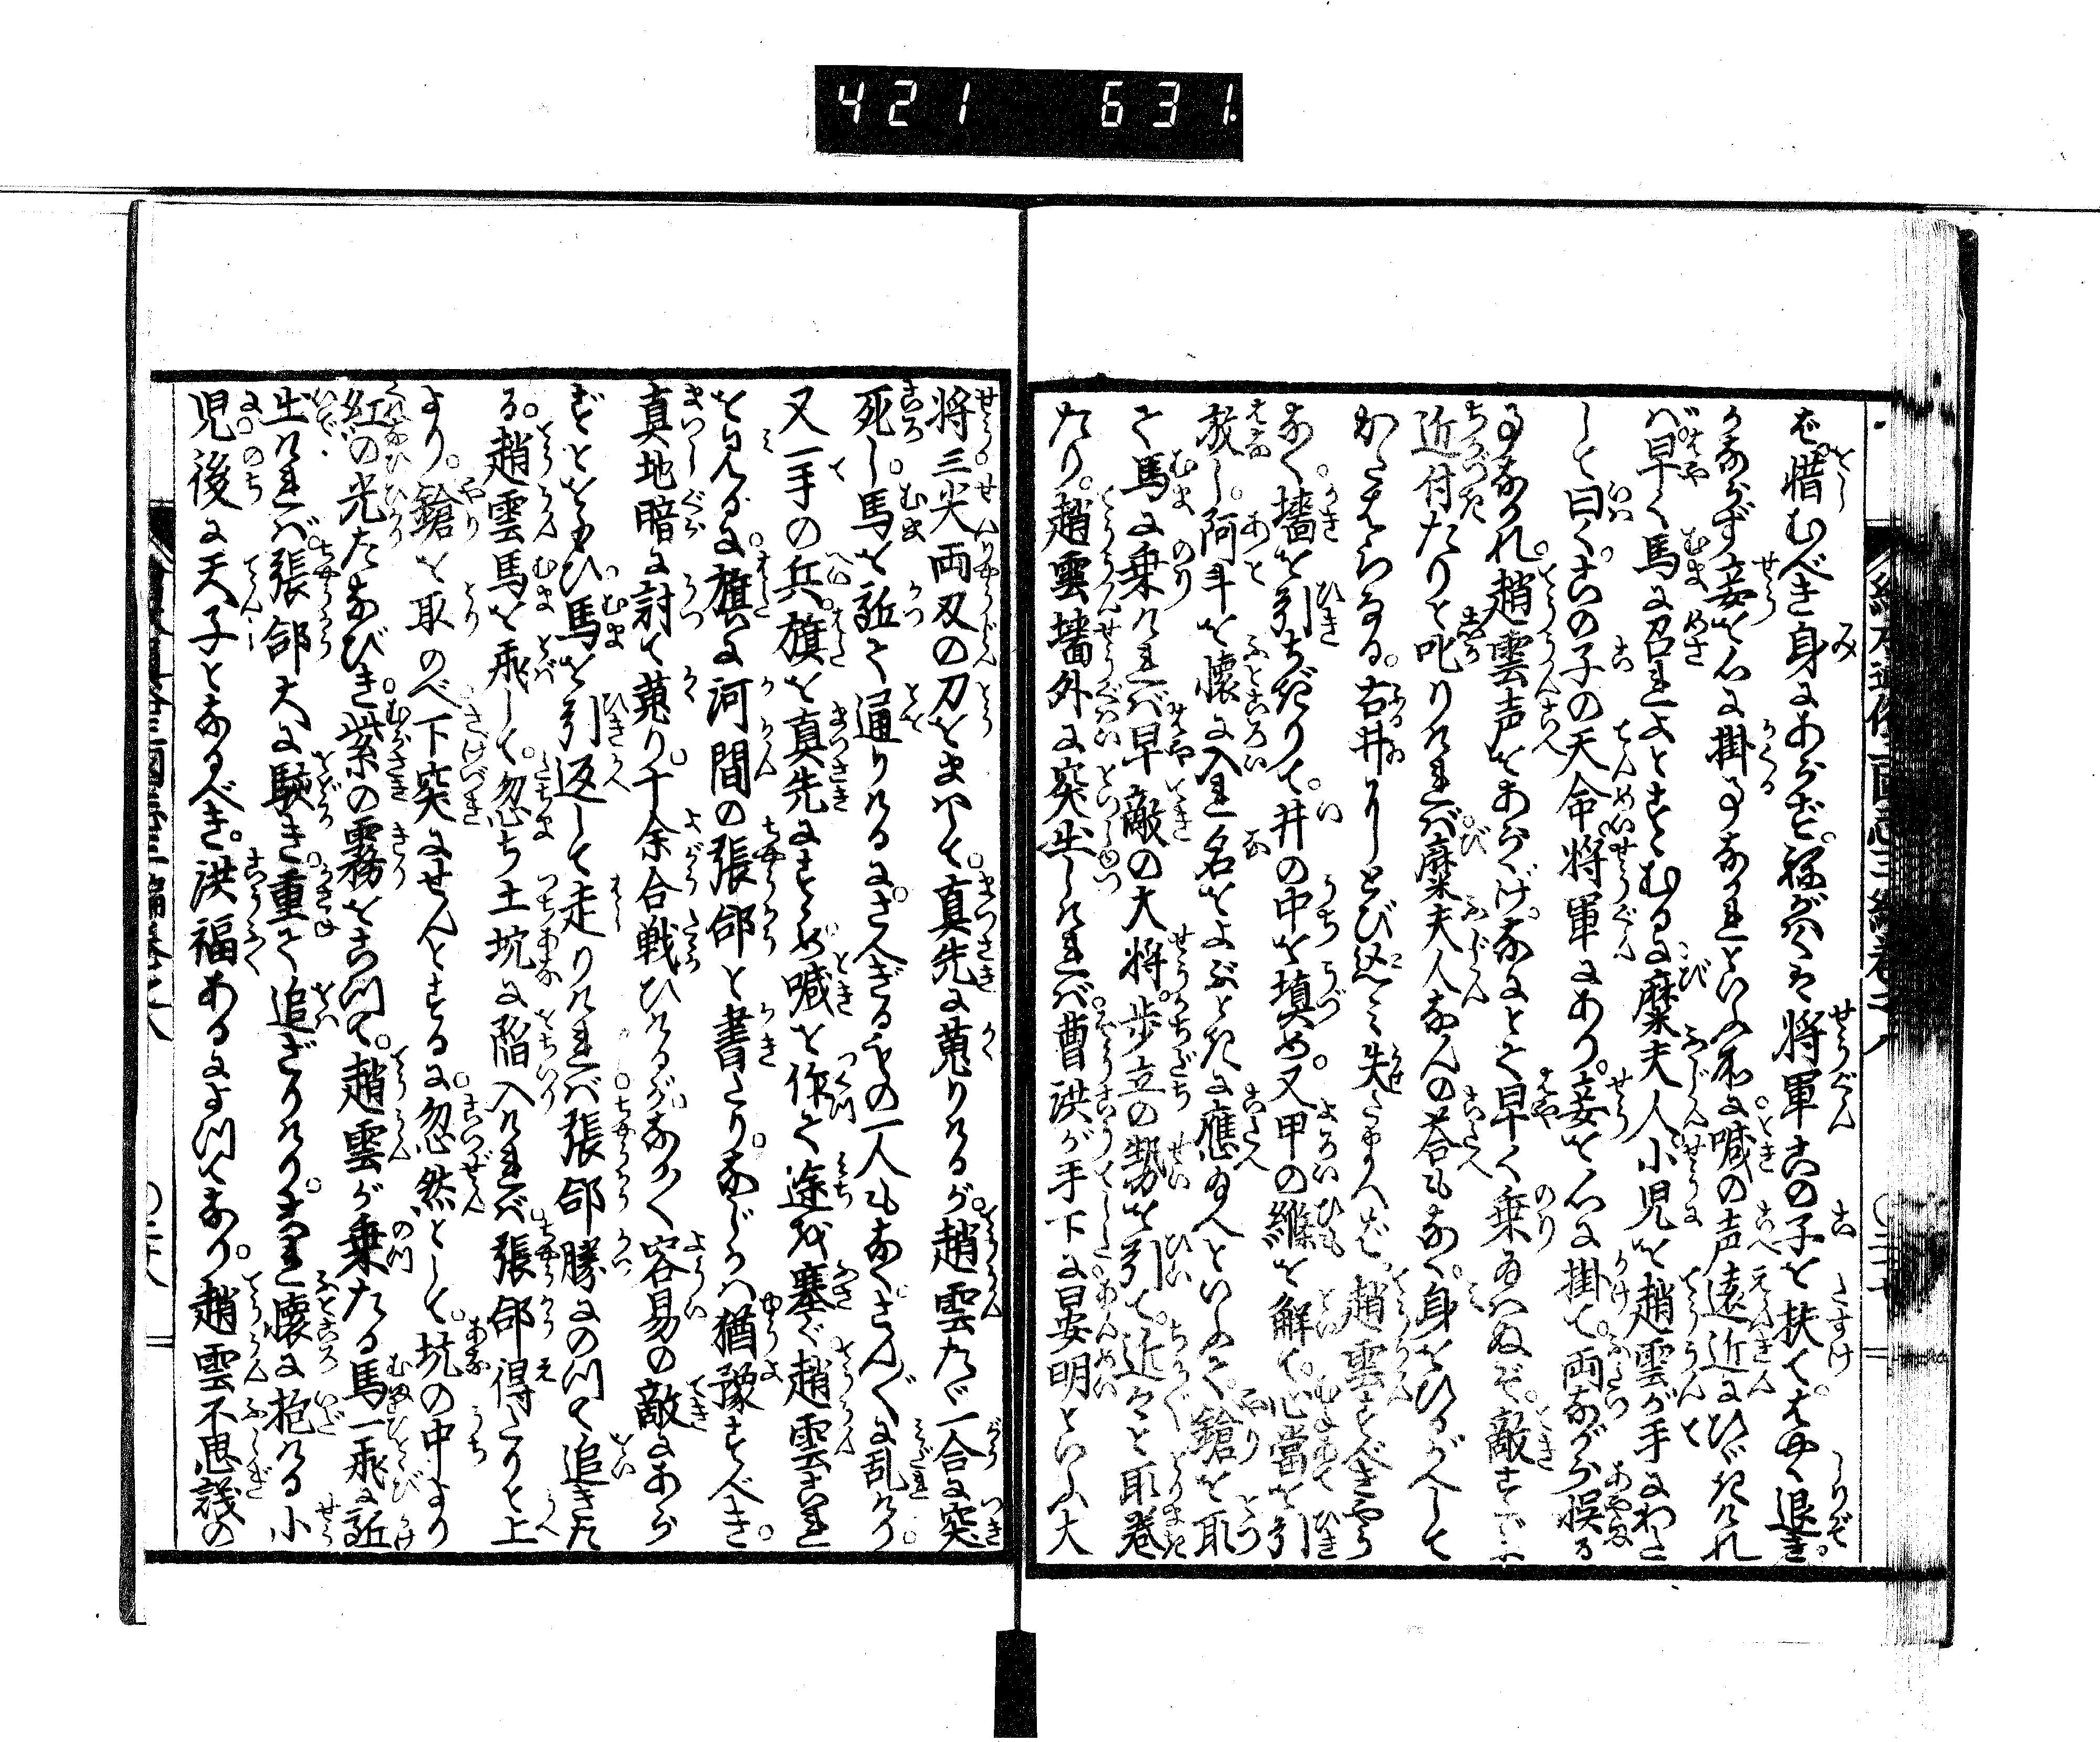 421 631
ど惜むべき身にあらず。稱がハくは将軍この子を扶て。はやく退き。
かならず妾を心に掛る事なかれといふ所に喊の声遠近にひゞきけれ
バ早く馬に召れよとすゝむるに糜夫人小児を趙雲が手にわた
して曰くこの子の天命将軍にあり。妾を心に掛て両ながら誤る
事なかれ。趙雲声をあらゝげ。なにとて早く乗給ハぬぞ。敵すでに
近付たりと叱りけれバ糜夫人なんの荅もなく。身をひるがへして
かたはらなる。古井にとび込て失たまへば。趙雲すべきやう
なく。墻を引たをして。井の中を填め。又甲の縧を解て。心當を引
放し。阿斗を懐に入れ名をよぶときに應給へといふて。鎗を取
て馬に乗けれバ早敵の大将。歩立の勢を引て。近々と取巻
たり。趙雲墻外に突出しけれバ曹洪が手下に晏明といふ大
将三尖両刃の刀をまはして。真先に蒐りけるが。趙雲たゞ一合に突
死し。馬を跑て通りけるに。さへぎるもの一人もなく。さんざんに乱けり。
又一手の兵。旗を真先にすゝめ。喊を作て途を塞ぐ趙雲これ
を見るに。旗に河間の張郃と書たり。なじかハ猶豫すべき。
真地暗に討て蒐り。十余合戦ひけるが。なかく容易の敵にあら
ずとおもひ馬を引返して走りけれバ張郃勝にのつて追きた
る。趙雲馬を飛して。忽ち土坑に陥入けれバ張郃得たりと上
より。鎗を取のべ下突にせんとするに。忽然として。坑の中より
紅の光たなびき。紫の霧をこつて。趙雲が乗たる馬一飛に跑
出けれバ。張郃大に駭き。重て追ざりけり。これ懐に抱ける小
児後に天子となるべき。洪福あるによつてなり。趙雲不思議の